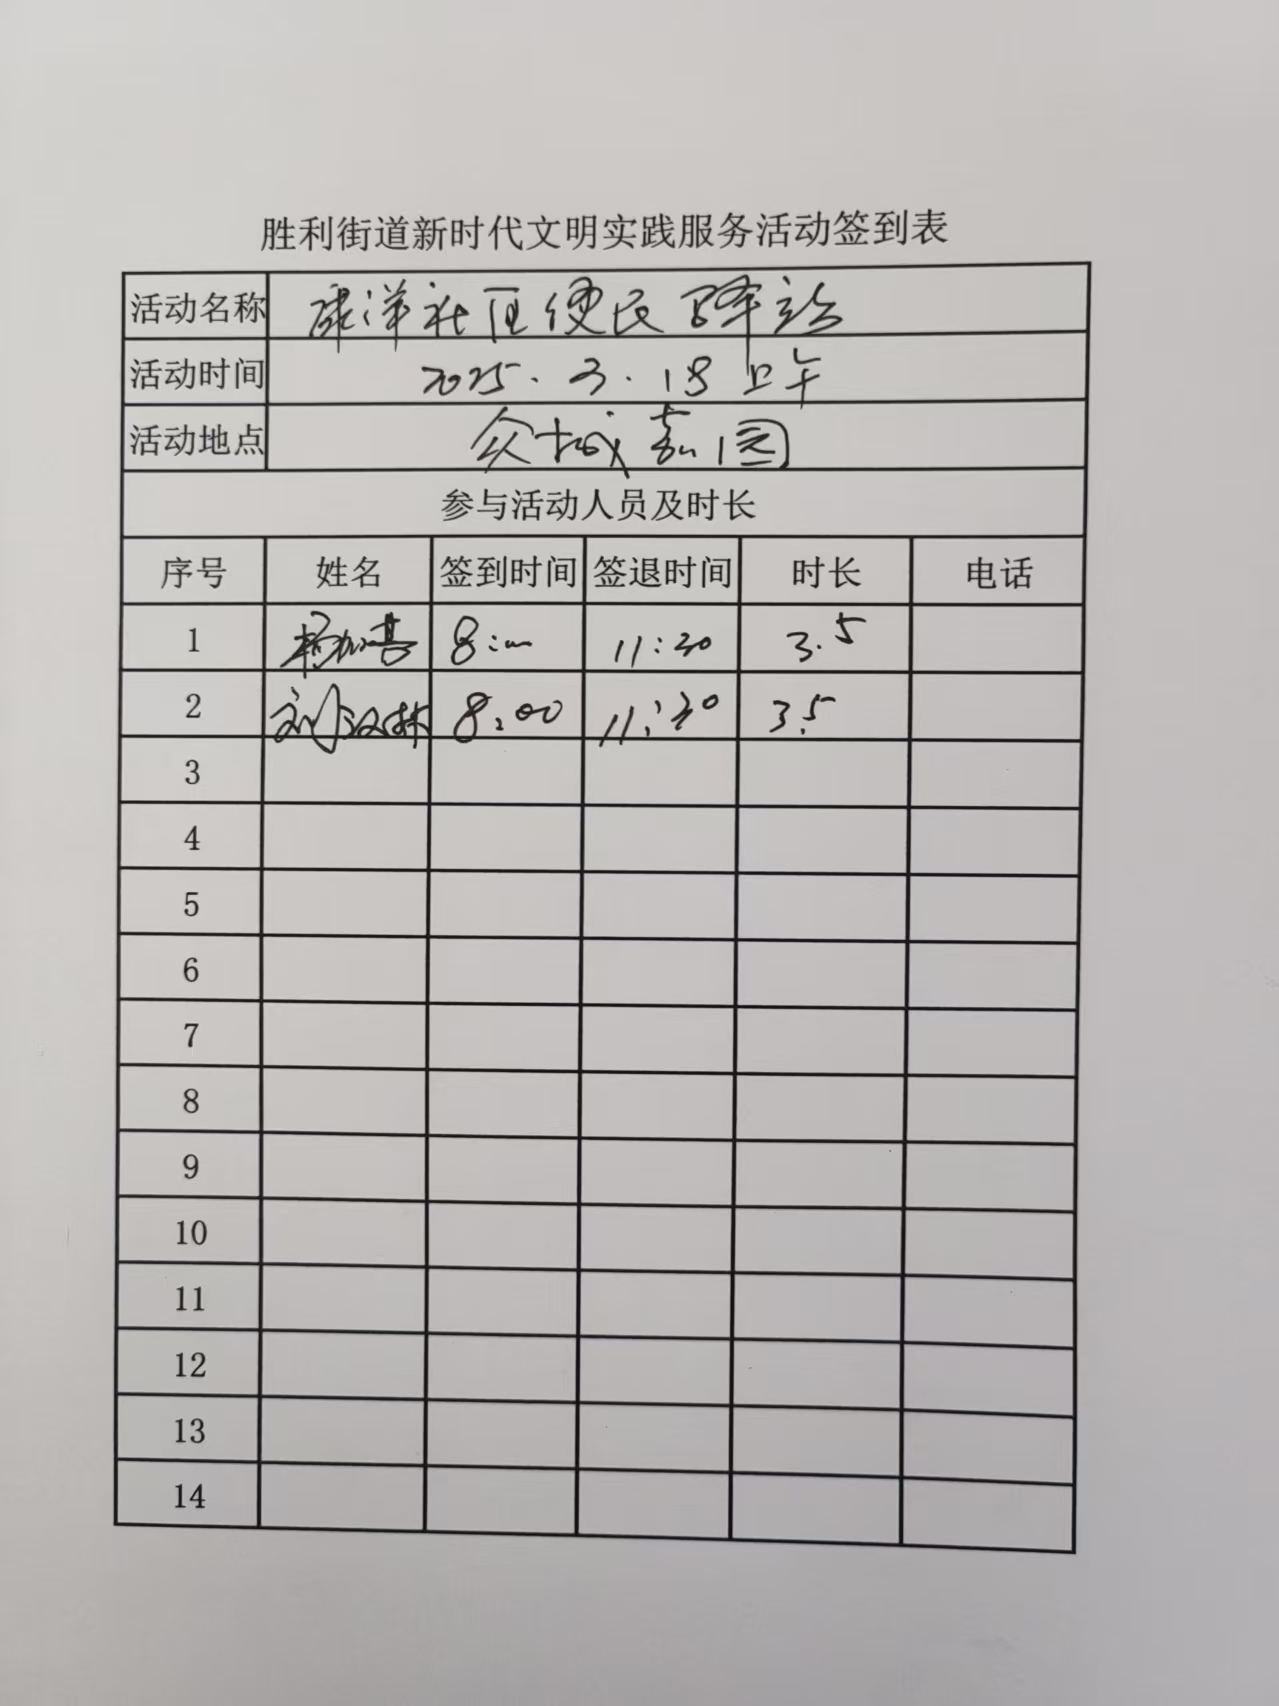 胜利街道新时代文明实践服务活动签到表
活动名称 康洋社区便民驿站
活动时间 2025.3.18 上午
活动地点 众城嘉园
参与活动人员及时长
序号 姓名 签到时间 签退时间 时长 电话
1 8:00 11:30 3.5
2 刘汉林 8:00 11:30 3.5
3
4
5
6
7
8
9
10
11
12
13
14